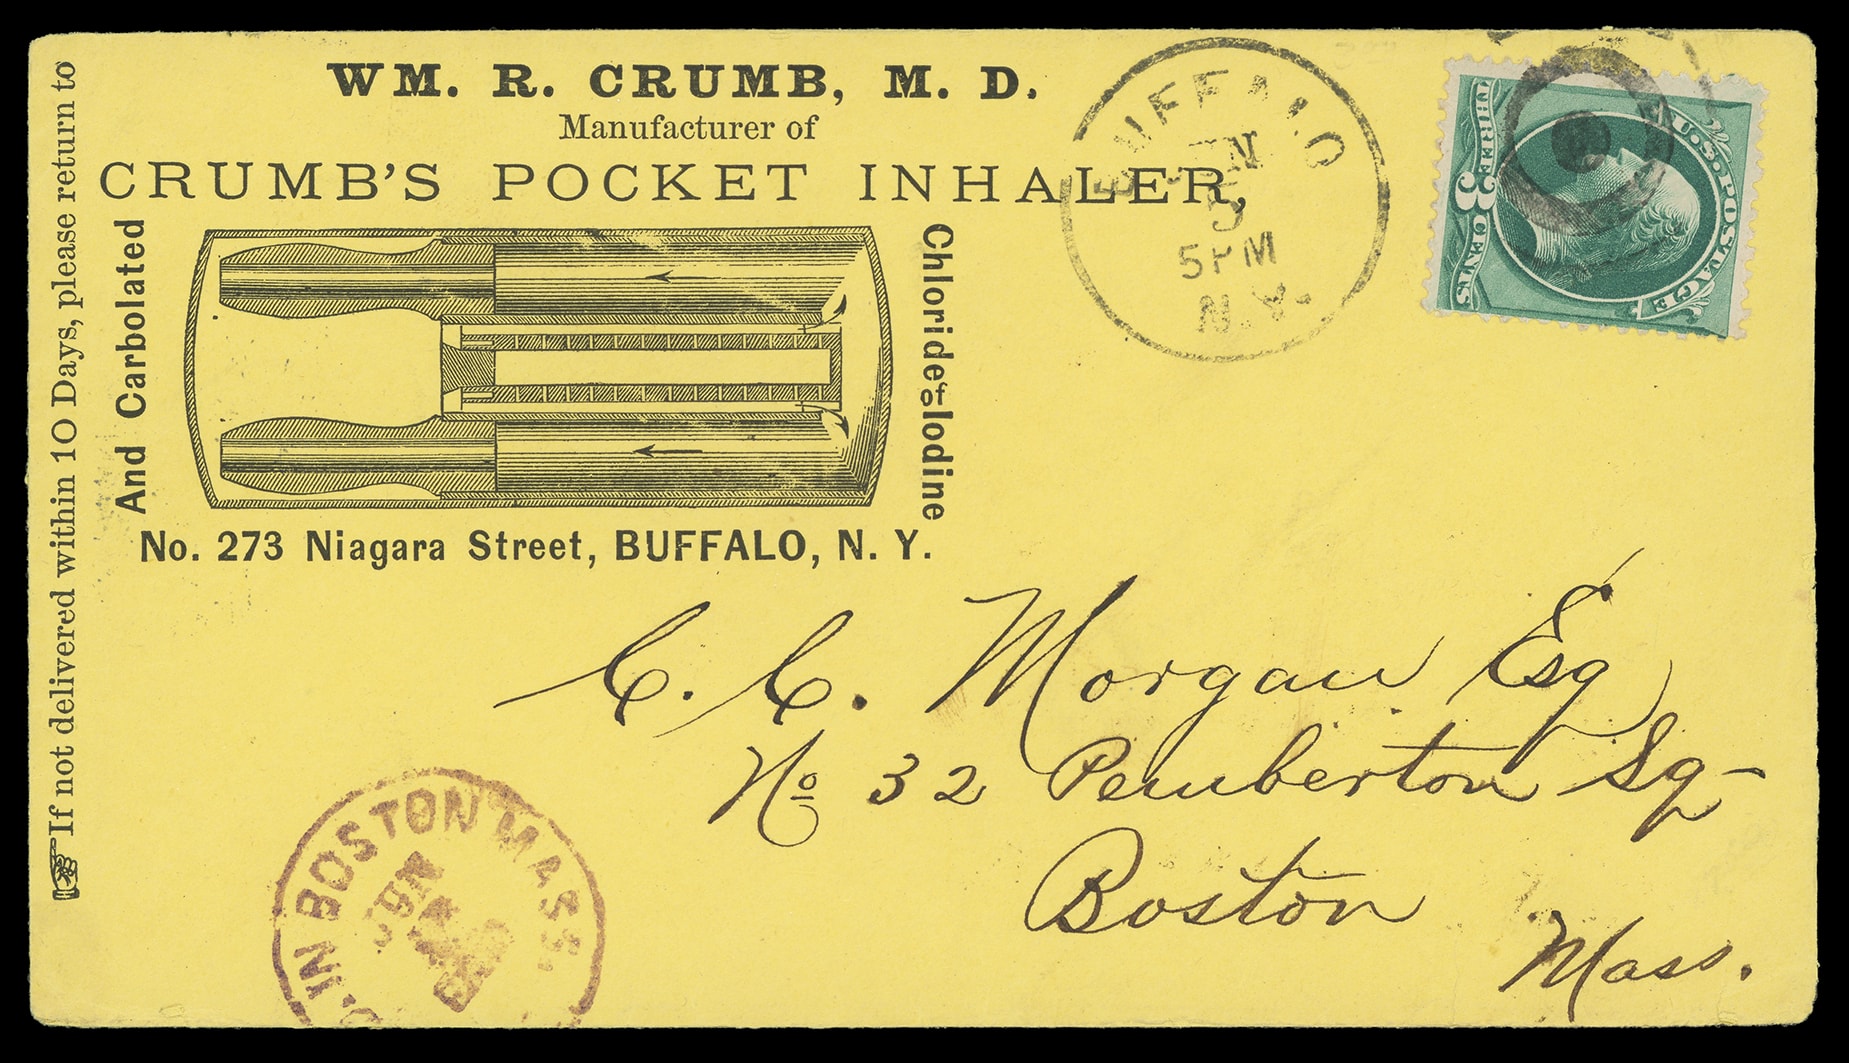 If not delivered within 10 Days, please return to
WM. R. CRUMB, M. D.
Manufacturer of
CRUMB'S POCKET INHALER,
And Carbolated
Chloride of Iodine
No. 273 Niagara Street, BUFFALO, N. Y.
BUFFALO
JUN
5
5 PM
N.Y.
U.S. POSTAGE
THREE 3 CENTS
C. C. Morgan Esq
No 32 Pemberton Sq
Boston
Mass.
IN BOSTON MASS
JUN